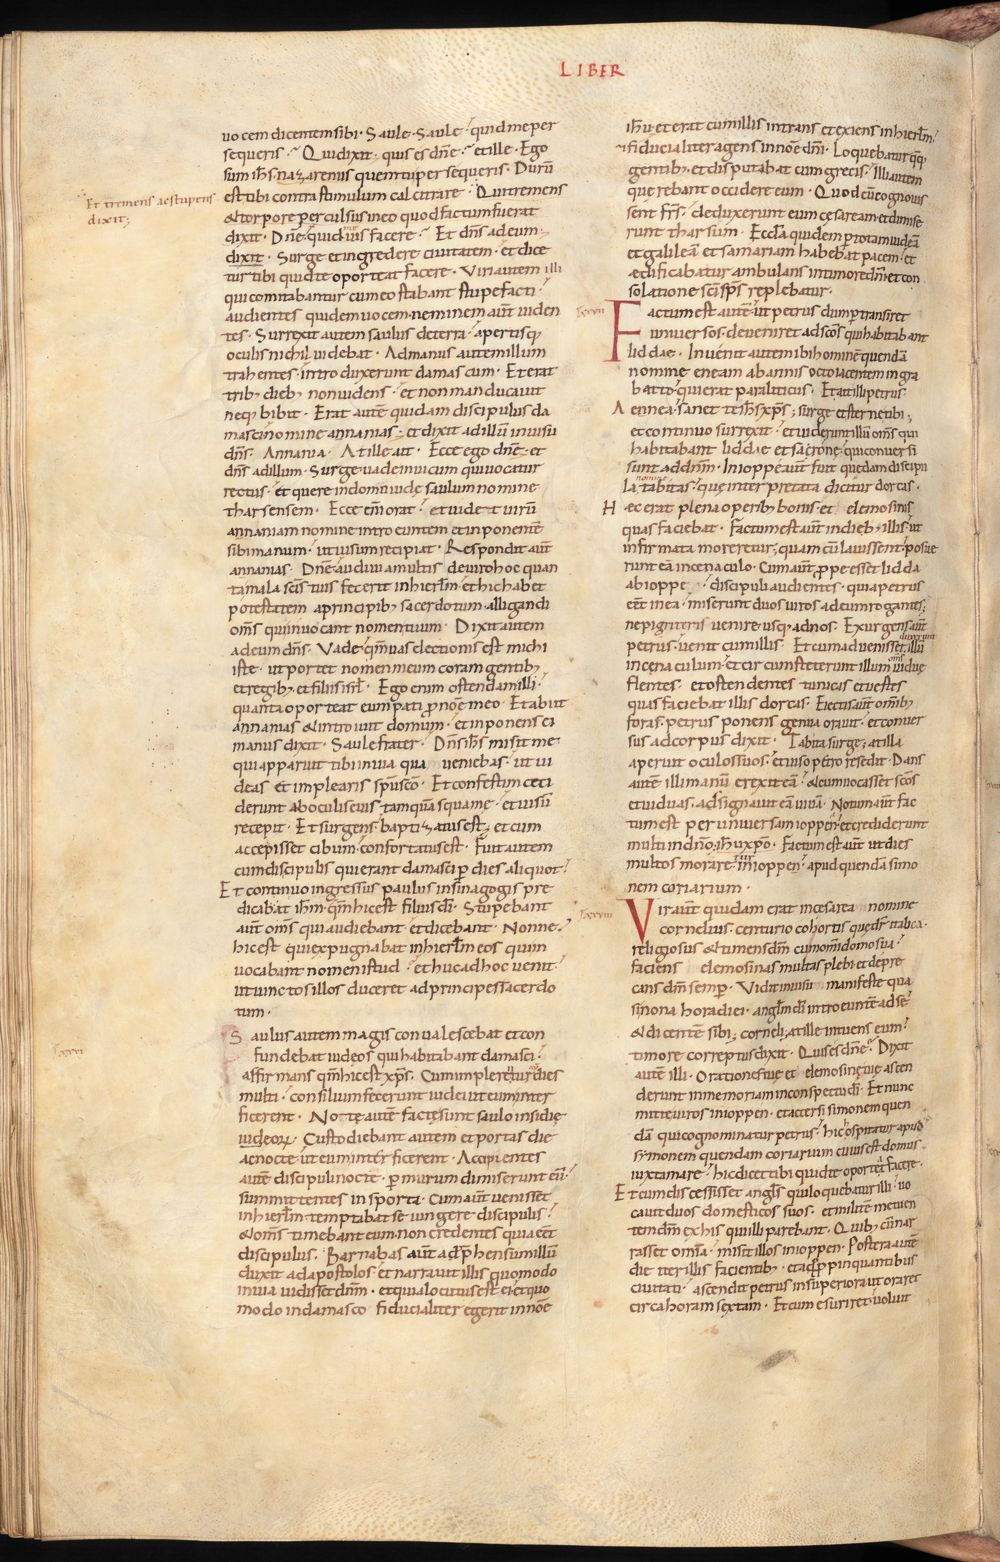 LIBER
uocem dicentem sibi · Saule · Saule · quid me per
sequeris · Qui dixit · quis es dñe · et ille · Ego
sum ihs nazarenus quem tu persequeris · Durũ
est tibi contra stimulum calcitrare · Qui tremens
Et tremens ac stupens
dixit;
& torpore perculsus in eo quod factum fuerat
dixit · Dñe quid me uis facere · Et dñs ad eum ·
dixit · Surge et ingredere ciuitatem · et dice
tur tibi quid te oporteat facere · Viri autem illi
qui comitabantur cum eo stabant stupefacti ·
audientes quidem uocem neminem aũt uiden
tes · Surrexit autem saulus de terra · apertisq;
oculis nichil uidebat · Ad manus autem illum
trahentes · introduxerunt damascum · Et erat
trib; dieb; non uidens · et non manducauit
neq; bibit · Erat autẽ quidam discipulus da
masci nomine annanias · et dixit ad illũ in uisu
dñs · Annania · At ille ait · Ecce ego dñe · et
dñs ad illum · Surge uade in uicum qui uocatur
rectus · et quere in domu iudę saulum nomine
tharsensem · Ecce em̃ orat · et uidet uirũ
annaniam nomine introeuntem et inponentẽ
sibi manum · ut uisum recipiat · Respondit aũt
annanias · Dñe audiui a multis de uiro hoc quan
ta mala scĩs tuis fecerit in hierlm̃ · et hic habet
potestatem a principib; sacerdotum alligandi
om̃s qui inuocant nomen tuum · Dixit autem
ad eum dñs · Vade qm̃ uas electionis est michi
iste · ut portet nomen meum coram gentib;
et regib; et filiis isrl̃ · Ego enim ostendam illi ·
quanta oporteat eum pati p nõe meo · Et abiit
annanias & introiuit domum · et inponens ei
manus dixit · Saule frater · Dñs ihs misit me
qui apparuit tibi in uia qua ueniebas · ut ui
deas et implearis sp̃u sc̃o · Et confestim ceci
derunt ab oculis eius tamquã squame · et uisũ
recepit · Et surgens baptizatus est; et cum
accepisset cibum confortatus est · Fuit autem
cum discipulis qui erant damasci p dies aliquot ·
Et continuo ingressus paulus in sinagogis pre
dicabat ihm̃ · qm̃ hic est filius dĩ · Stupebant
aũt om̃s qui audiebant et dicebant · Nonne
hic est qui expugnabat in hierlm̃ eos qui in
uocabant nomen istud · et huc ad hoc uenit
ut uinctos illos duceret ad principes sacerdo
tum ·
Saulus autem magis conualescebat et con
fundebat iudeos qui habitabant damasci ·
affirmans qm̃ hic est xps̃ · Cum implerentur dies
multi · consilium fecerunt iudei ut eum inter
ficerent · Notę autẽ factę sunt saulo insidię
iudeorꝝ · Custodiebant autem et portas die
ac nocte ut eum interficerent · Accipientes
autẽ discipuli nocte · p murum dimiserunt eũ ·
summittentes in sporta · Cum aũt uenisset
in hierlm̃ · temptabat se iungere discipulis ·
& om̃s timebant eum non credentes quia eẽt
discipulus · Barnabas aũt adp̃hensum illũ
duxit ad apostolos · et narrauit illis quomodo
in uia uidisset dñm · et quia locutus est ei · et quo
modo in damasco fiducialiter egerit in nõe
ihũ · et erat cum illis intrans et exiens in hierlm̃ ·
fiducialiter agens in nõe dñi · Loquebatur q̃q;
gentib; et disputabat cum grecis · Illi autem
querebant occidere eum · Quod cũ cognouis
sent frs̃ · deduxerunt eum cesaream · et dimise
runt tharsum · Ecclã quidem p totam iudeã
et galileã et samariam habebat pacem · et
ædificabatur ambulans in timore dñi · et con
solatione scĩ sp̃s replebatur ·
Factum est autẽ · ut petrus dum ptransiret
uniuersos · deueniret ad sc̃os qui habitabant
liddae · Inuenit autem ibi hominẽ quendã
nomine eneam ab annis octo iacentem in gra
batto · qui erat paraliticus · Et ait illi petrus ·
Aennea · sanet te ihs xps̃; surge et sterne tibi;
et continuo surrexit · et uiderunt illũ om̃s qui
habitabant liddae et sarone · qui conuersi
sunt ad dñm · In ioppe aũt fuit quędam discipu
la nomine tabitas · que interpretata dicitur dorcas ·
Hec erat plena operib; bonis et elemosinis
quas faciebat · Factum est aũt in dieb; illis · ut
infirmata moreretur; quam cũ lauissent · posue
runt eã in cenaculo · Cum aũt ppe esset lidda
ab ioppe · discipuli audientes · quia petrus
eẽt in ea · miserunt duos uiros ad eum rogantes;
ne pigriteris uenire usq; ad nos · Exurgens aũt
petrus · uenit cum illis · Et cum aduenisset · duxerunt illũ
in cenaculum · et circumsteterunt illum om̃s uiduę
flentes · et ostendentes tunicas et uestes
quas faciebat illis dorcas · Eiectis aũt om̃ib;
foras · petrus ponens genua orauit · et conuer
sus ad corpus dixit · Tabita surge; at illa
aperuit oculos suos · et uiso petro resedit · Dans
autẽ illi manũ erexit eã · & cum uocasset sc̃os
et uiduas · adsignauit eã uiuã · Notum aũt fac
tum est per uniuersam ioppen · et crediderunt
multi in dño ihũ xpõ · Factum est aũt ut dies
multos moraretur in ioppen · apud quendã simo
nem coriarium ·
Vir aũt quidam erat in cesarea nomine
cornelius · centurio cohortis quę dr̃ italica ·
religiosus & timens dm̃ cum omi domo sua ·
faciens elemosinas multas plebi · et depre
cans dm̃ semp · Vidit in uisu manifeste qua
si nona hora diei · anglm̃ dĩ introeuntẽ ad se
& dicentẽ sibi; corneli; at ille intuens eum ·
timore correptus dixit · Quis es dñe · Dixit
autẽ illi · Orationes tuę et elemosinę tuę ascen
derunt in memoriam in conspectu dĩ · Et nunc
mitte uiros in ioppen · et accersi simonem quen
dã · qui cognominatur petrus · hic ospitatur apud
symonem quendam coriarium cuius est domus
iuxta mare · hic dicet tibi quid te oporteat facere ·
Et cum discessisset angls̃ qui loquebatur illi · uo
cauit duos domesticos suos · et militẽ metuen
tem dm̃ ex his qui illi parebant · Quib; cũ nar
rasset omĩa · misit illos in ioppen · Postera autẽ
die iter illis facientib; · et adppinquantibus
ciuitati · ascendit petrus in superiora ut oraret
circa horam sextam · Et cum esuriret uoluit